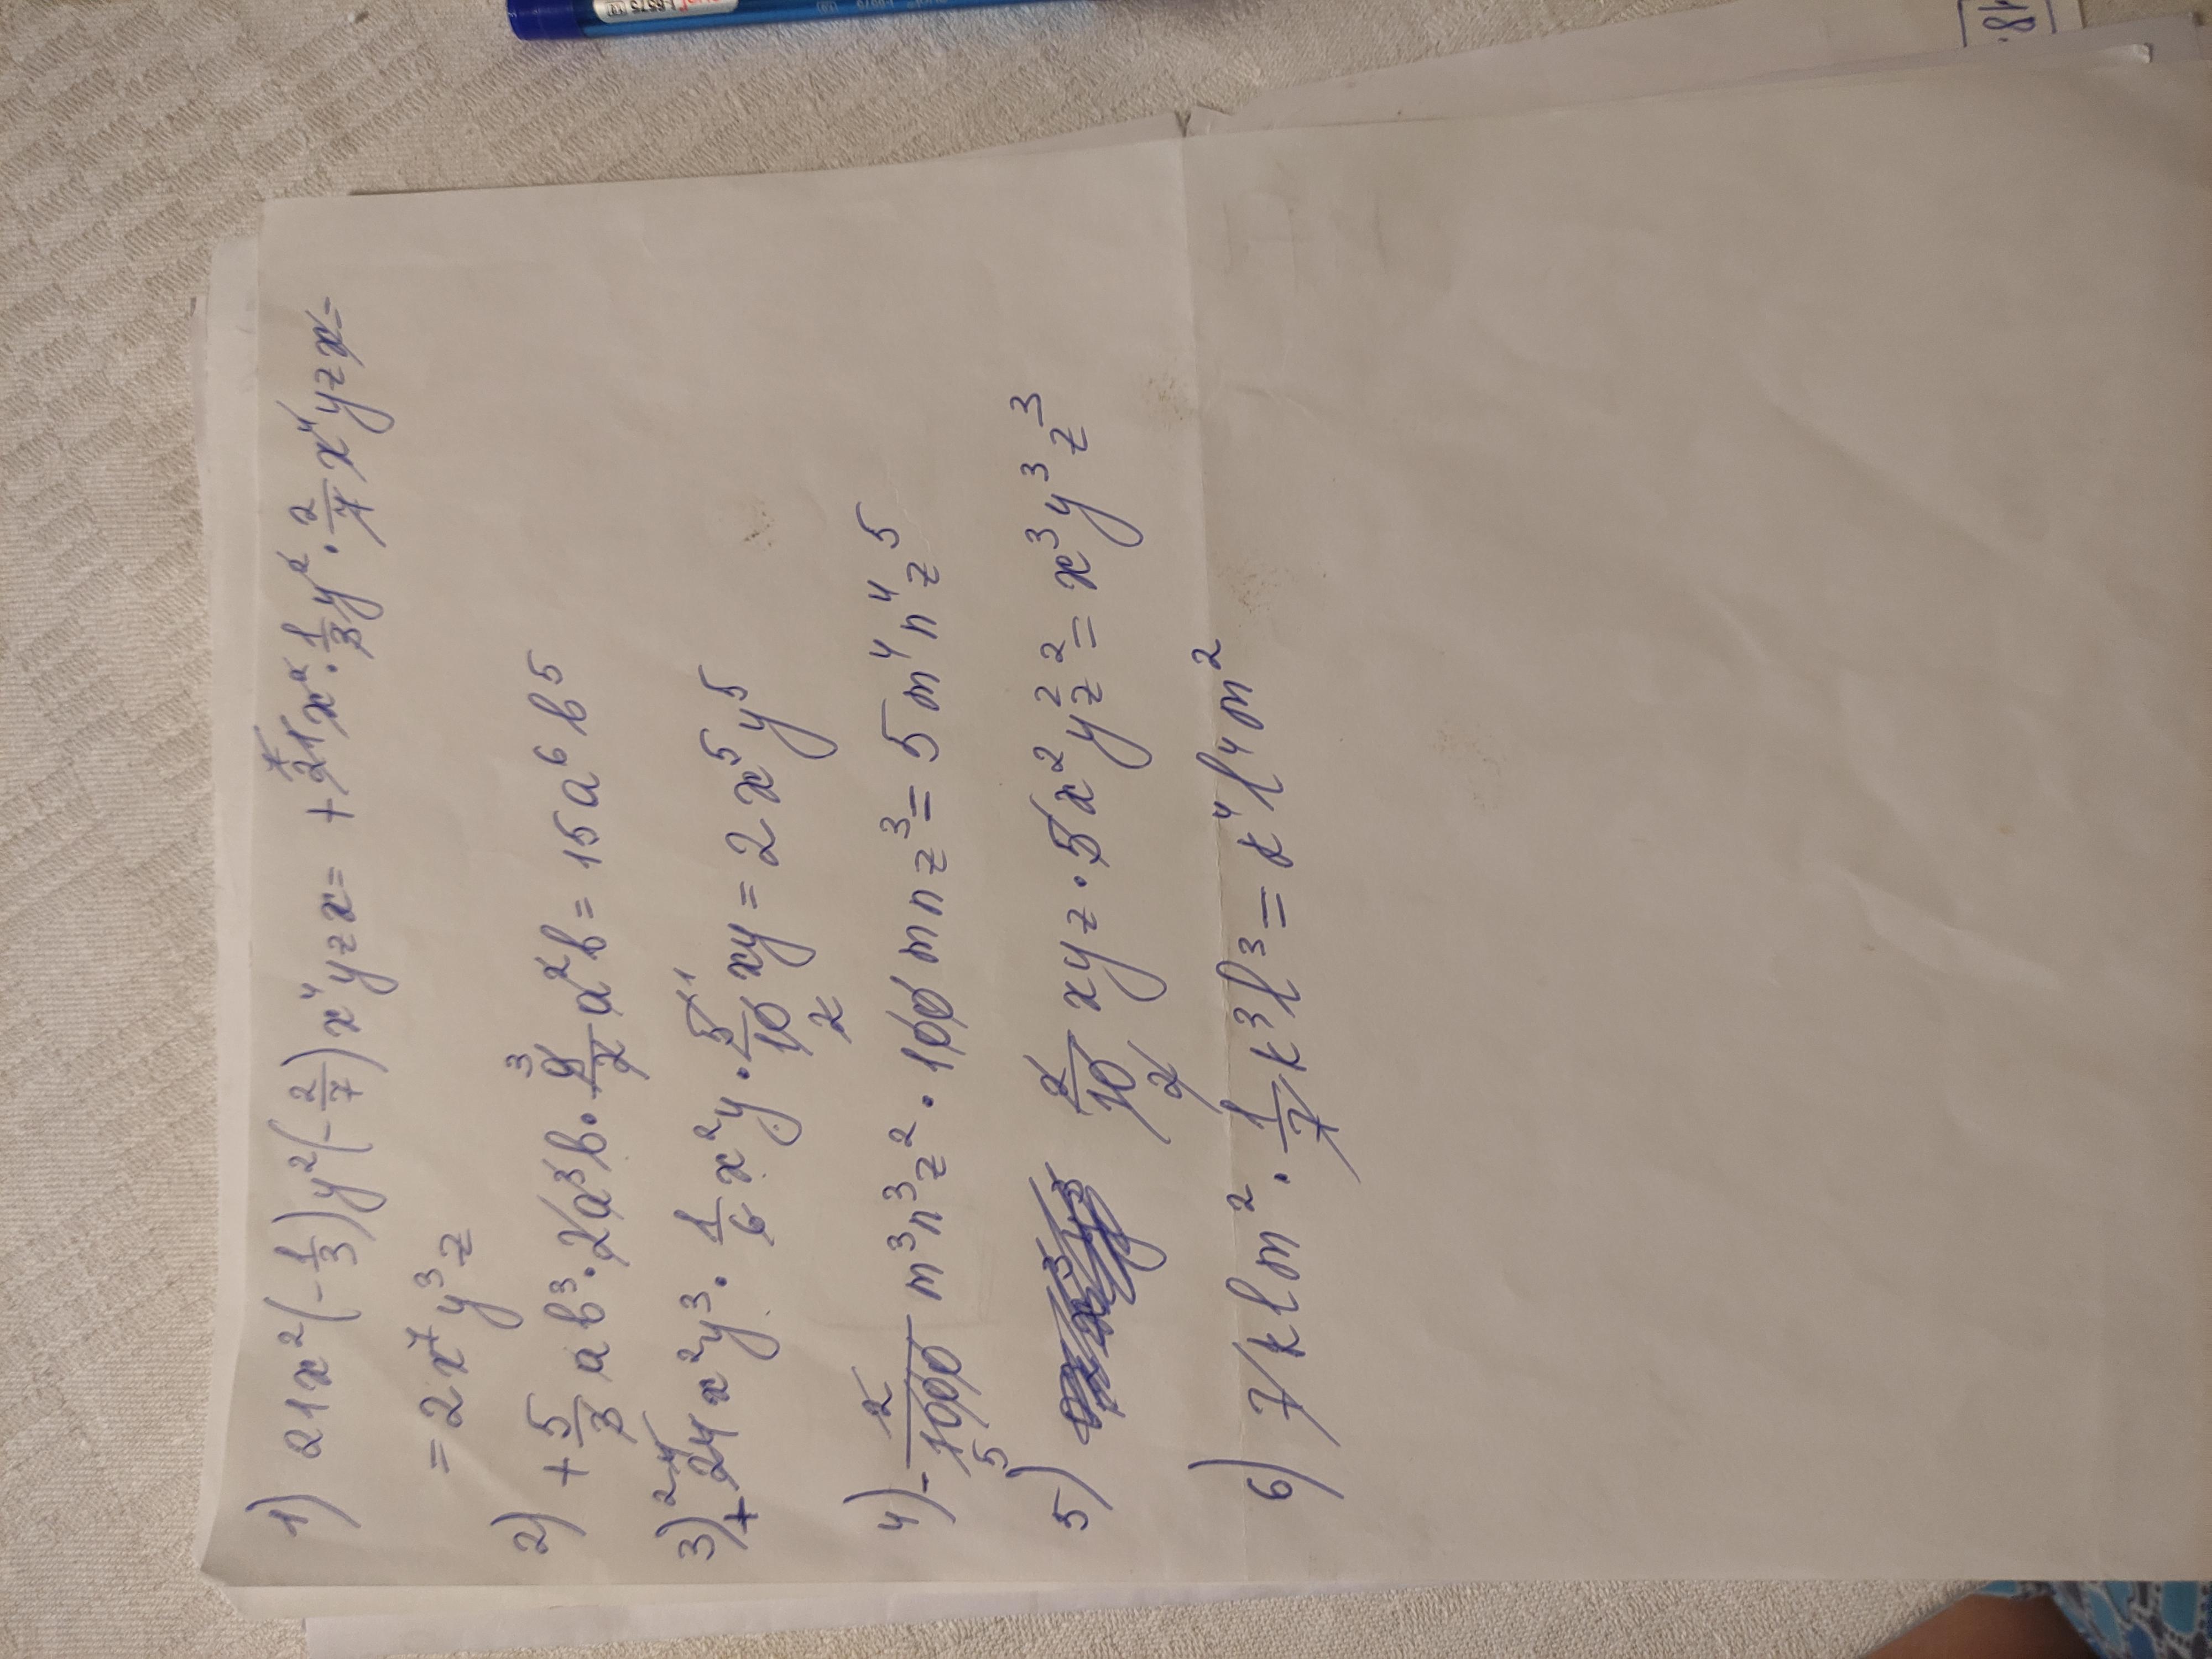 1) 21x²(-1/3)y²(-2/7)x⁴yzx= +21x²·1/3y²·2/7x⁴yzx=
=2x⁷y³z
2) +5/3ab³·2a³b·9/2a²b=15a⁶b⁵
3) +24x²y³·1/6x²y·5/10xy=2x⁵y⁵
4) -2/1000m³n³z²·100mnz³=5m⁴n⁴z⁵
5) 2/10xyz·5x²y²z²=x³y³z³
6) 7klm²·1/7k³l³=k⁴l⁴m²